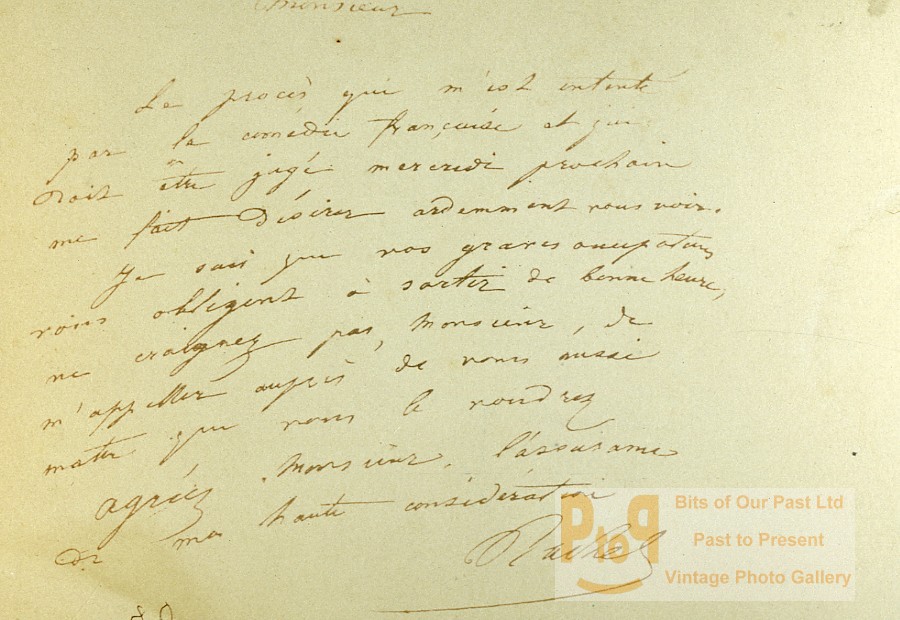 Monsieur
Le procès qui m'est intenté
par la comédie française et qui
doit être jugé mercredi prochain
me fait désirer ardemment vous voir.
Je sais que vos graves occupations
vous obligent à sortir de bonne heure,
ne craignez pas, Monsieur, de
m'appeller auprès de vous aussi
matin que vous le voudrez
agréez Monsieur, l'assurance
de ma haute considération
Rachel
PtoP
Bits of Our Past Ltd
Past to Present
Vintage Photo Gallery